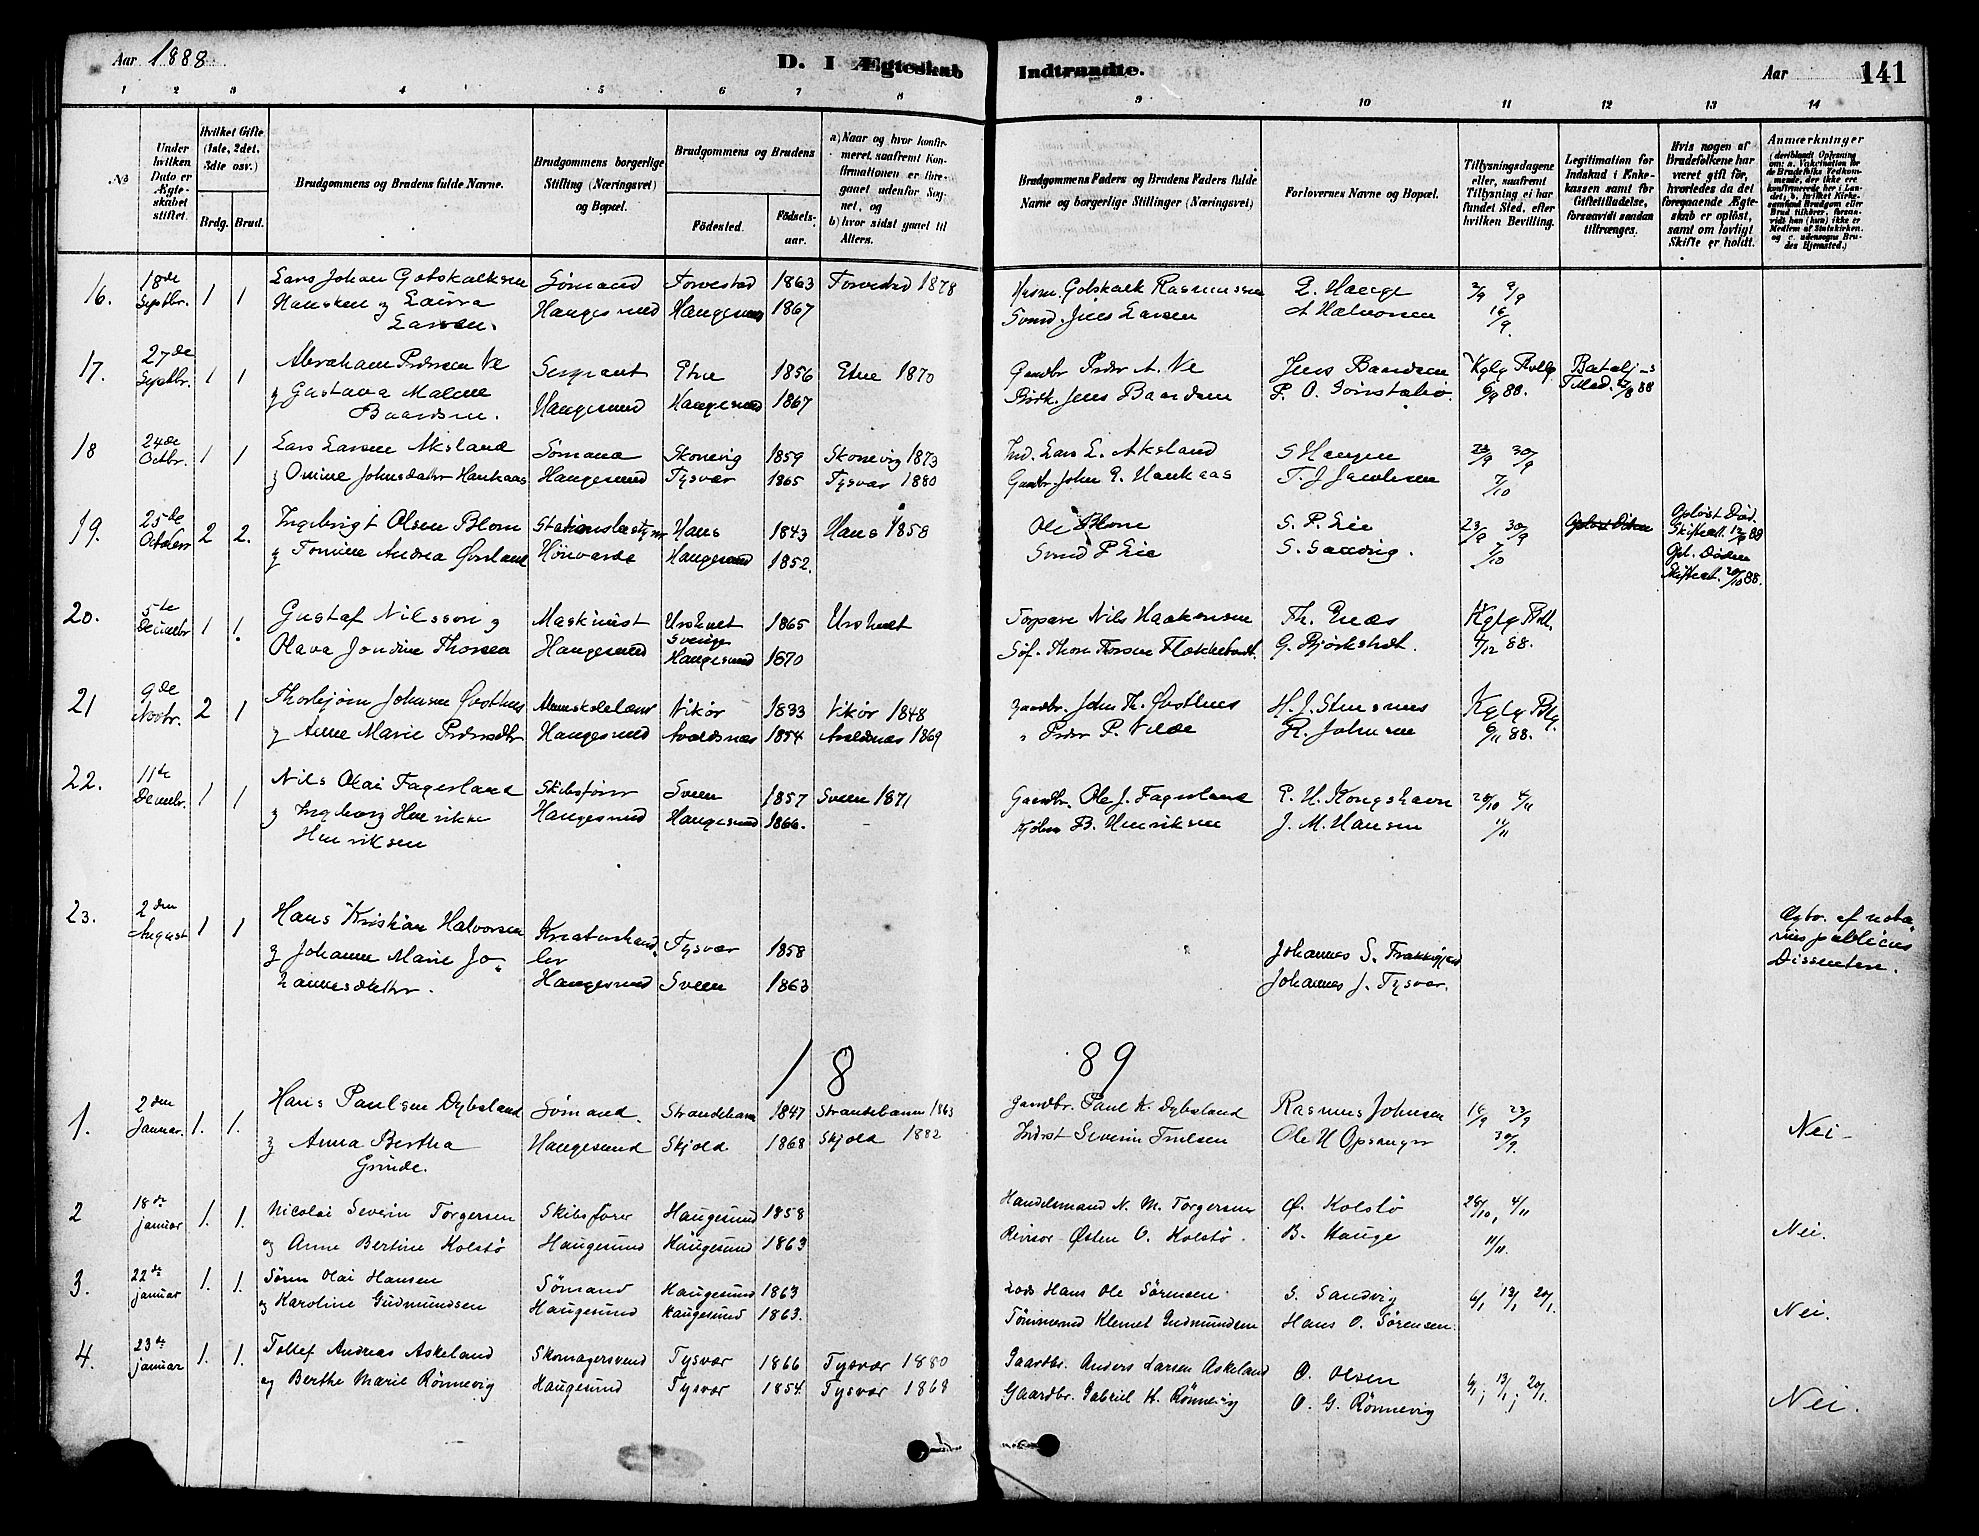 Aar 1888
D. I Ægteskab Indtraadte.
Aar 141
1 2 3 4 5 6 7 8 9 10 11 12 13 14
№
Under hvilken Dato er Ægteskabet stiftet.
Hvilket Gifte (1ste, 2det, 3die osv.)
Brdg. Brud.
Brudgommens og Brudens fulde Navne.
Brudgommens borgerlige Stilling (Næringsvei) og Bopæl.
Brudgommens og Brudens
Fødested.
Fødselsaar.
a) Naar og hvor konfirmeret, saafremt Konfirmationen er foregaaet udenfor Sognet, og
b) hvor sidst gaaet til Alters.
Brudgommens Faders og Brudens Faders fulde Navne og borgerlige Stillinger (Næringsvei)
Forlovernes Navne og Bopæl.
Tillysningsdagene eller, saafremt Tillysning ei har fundet Sted, efter hvilken Bevilling.
Legitimation for Indskud i Enkekassen samt for Giftetilladelse, forsaavidt saadan tiltrænges.
Hvis nogen af Brudefolkene har været gift før, hvorledes da det foregaaende Ægteskab er opløst, samt om lovligt Skifte er holdt.
Anmærkninger
16. 18de Septbr. 1 1 Lars Johan Gotskalksen Sømand Torvestad 1863 Torvestad 1878 Husm. Gotskalk Rasmussen L. Hauge 2/9 9/9
Hansken og Laura Larsen. Haugesund Haugesund 1867 Svend Jens Larsen A Halvorsen 16/9.
17. 27de Septbr. 1 1 Abraham Pedersen Ve Sergeant Etne 1856 Etne 1870 Gaardbr. Peder A. Ve Jens Baardsen Kglg Bvlg Batalj-s
og Gustava Malene Baardsen. Haugesund Haugesund 1867 Jens Baardsen P. O. 6/9 88. Tillad. 88
18 24de Octbr. 1 1 Lars Larsen Aksland Sømand Skonevig 1859 Skonevig 1873 Ind. Lars L. Aksland S Haugen 23/9 30/9
og Omine Johnsdatter Haukaas Haugesund Tysvær 1865 Tysvær 1880 Gaardbr. John P. Haukaas T. J Jacobsen 7/10
19. 25de October 2 2. Ingebrigt Olsen Blom Haus 1843 Haus 1858 Ole Blom S. P. Lie 23/9 30/9
og Tomine Andrea Haugesund 1852. Svend P Lie S. Sandvig. 7/10
20. 5te Decmbr 1 1. Gustaf Nilsson og Maskinist Urshult Sverige 1865 Urshult Torpare Nils Haakonsen Th. Kglg Bvl.
Olava Jondine Thorsen Haugesund Haugesund 1870 Søf. Thore Thorsen G. Bjørkstedt. 4/12 88.
21 9de Novbr. 2 1 Thorbjørn Johnsen Østhus Vikør 1833 Vikør 1848 Gaardbr. John Th. Østhus H. J. Stensnes Kglg Blg.
og Anne Marie Pedersdtr Haugesund Avaldsnæs 1854 Avaldsnæs 1869 " Peder P. Velde R. Johnsen 6/11 88.
22. 11te Decmbr. 1 1 Nils Olai Fagerland Skibsfører Sveen 1857 Sveen 1871 Gaardbr. Ole J. Fagerland P. H. Kongshavn 28/10 4/11
og Ingeborg Henrikke Henriksen Haugesund Haugesund 1866. B. Henriksen J. M. Hansen 11/11
23. 2den August 1 1 Hans Kristian Halvorsen Kreaturhandler Tysvær 1858 Johannes S.
og Johanne Marie Johannesdatter. Haugesund Sveen 1863 Johannes J. Tysvær.
Ægtv. af notarius publicus Dissentere.
18 89
1. 2den Januar. 1. 1. Hans Paulsen Dybsland Sømand. Strandebarm 1847 Strandebarm 1863 Gaardbr. Paul K. Dybsland Rasmus Johnsen 16/9 23/9
og Anna Bertha Grinde. Haugesund Skjold 1868 Skjold 1882 Indrst Severin Ole H Opsanger 30/9. Nei-
2 18de januar 1. 1. Nicolai Severin Torgersen Skibsfører Haugesund 1858 Handelsmand N. M. Torgersen Ø. Kolstø 28/10, 4/11
og Anne Bertine Kolstø Haugesund Haugesund 1863 Revisor Østen O. Kolstø. B. Hauge 11/11. Nei.
3. 22de januar 1. 1. Søren Olai Hansen Sømand Haugesund 1863 Lods Hans Ole Sørensen S. Sandvig 6/1 13/1 20/1.
og Karoline Gudmundsen Haugesund Haugesund 1863. Tømmermd Klemet Gudmundsen Hans O. Sørensen. Nei.
4. 23de januar 1. 1. Tollef Andreas Askeland Skomagersvend Tysvær 1866 Tysvær 1880 Gaardbr. Anders Larsen Askeland O. Olsen 6/1; 13/1; 20/1.
og Berthe Marie Rønnevig Haugesund Tysvær 1854 Tysvær 1869 Gaardbr. Gabriel K. Rønnevig O. G. Rønnevig Nei.